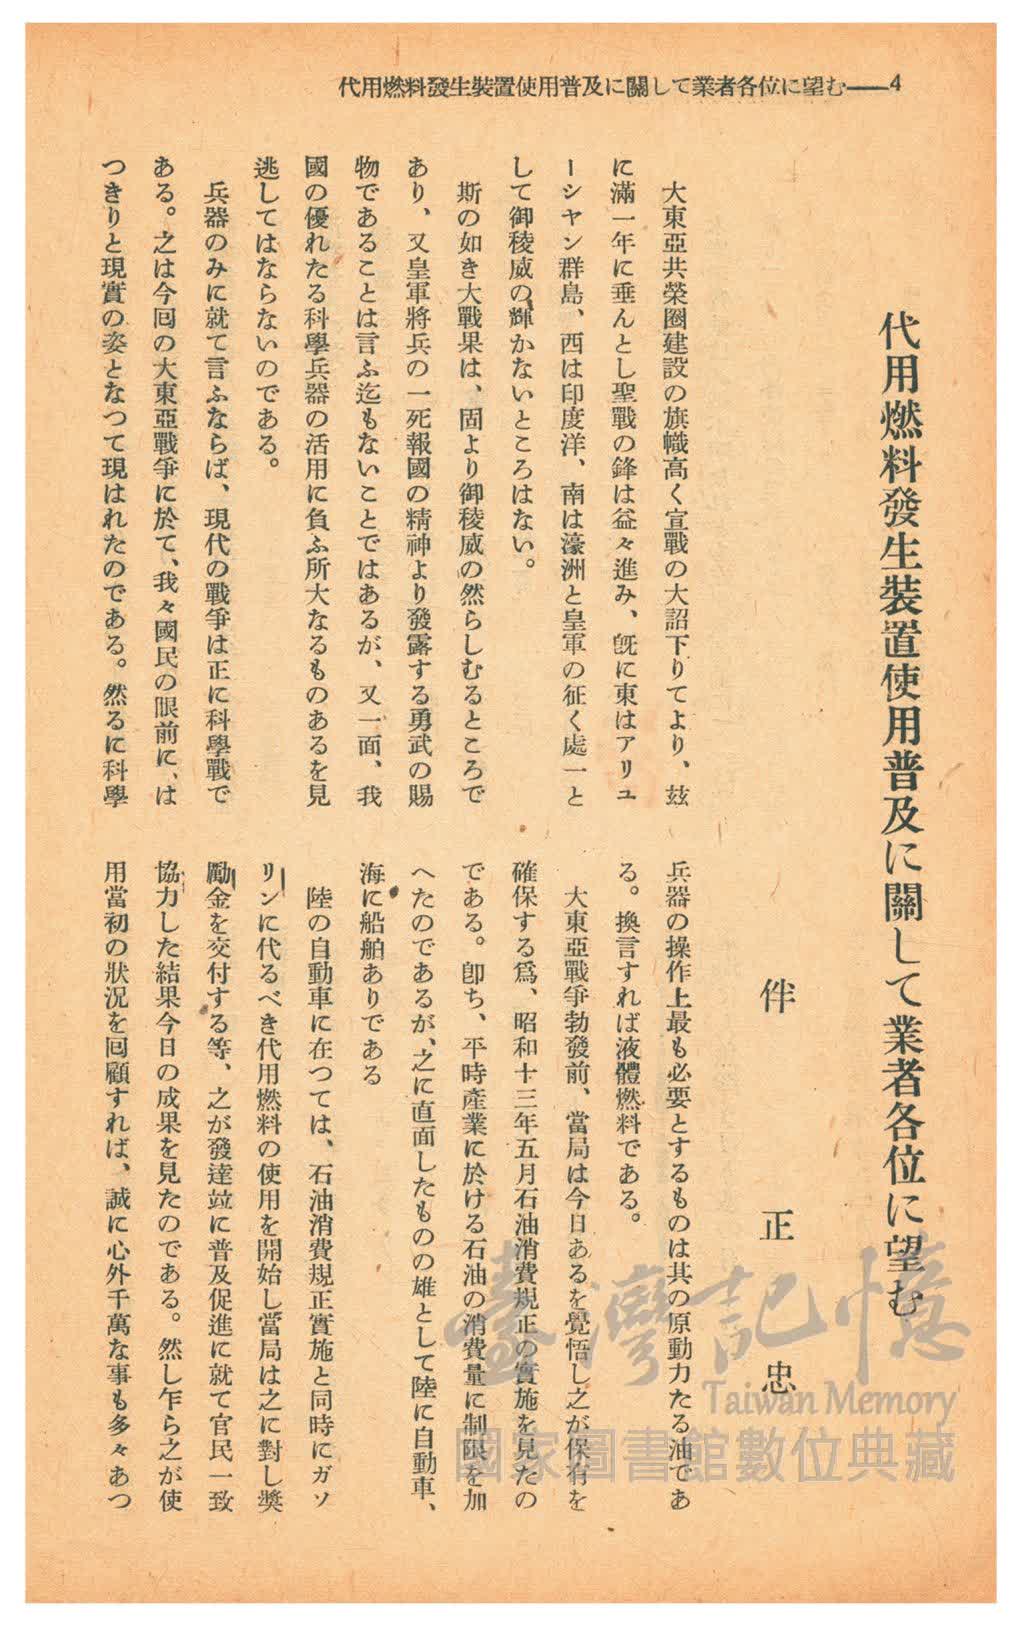 代用燃料發生裝置使用普及に關して業者各位に望む——4
代用燃料發生裝置使用普及に關して業者各位に望む
伴正忠
大東亞共榮圈建設の旗幟高く宣戰の大詔下りてより、玆
に滿一年に垂んとし聖戰の鋒は益々進み、旣に東はアリユ
ーシヤン群島、西は印度洋、南は濠洲と皇軍の征く處一と
して御稜威の輝かないところはない。
斯の如き大戰果は、固より御稜威の然らしむるところで
あり、又皇軍將兵の一死報國の精神より發露する勇武の賜
物であることは言ふ迄もないことではあるが、又一面、我
國の優れたる科學兵器の活用に負ふ所大なるものあるを見
逃してはならないのである。
兵器のみに就て言ふならば、現代の戰爭は正に科學戰で
ある。之は今囘の大東亞戰爭に於て、我々國民の眼前に、は
つきりと現實の姿となつて現はれたのである。然るに科學
兵器の操作上最も必要とするものは其の原動力たる油であ
る。換言すれば液體燃料である。
大東亞戰爭勃發前、當局は今日あるを覺悟し之が保有を
確保する爲、昭和十三年五月石油消費規正の實施を見たの
である。卽ち、平時產業に於ける石油の消費量に制限を加
へたのであるが、之に直面したものの雄として陸に自動車、
海に船舶ありである
陸の自動車に在つては、石油消費規正實施と同時にガソ
リンに代るべき代用燃料の使用を開始し當局は之に對し奬
勵金を交付する等、之が發達竝に普及促進に就て官民一致
協力した結果今日の成果を見たのである。然し乍ら之が使
用當初の狀況を囘顧すれば、誠に心外千萬な事も多々あつ
臺灣記憶
Taiwan Memory
國家圖書館數位典藏